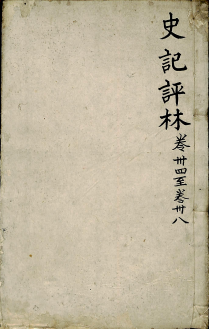 史記評林卷卅四至卷卅八